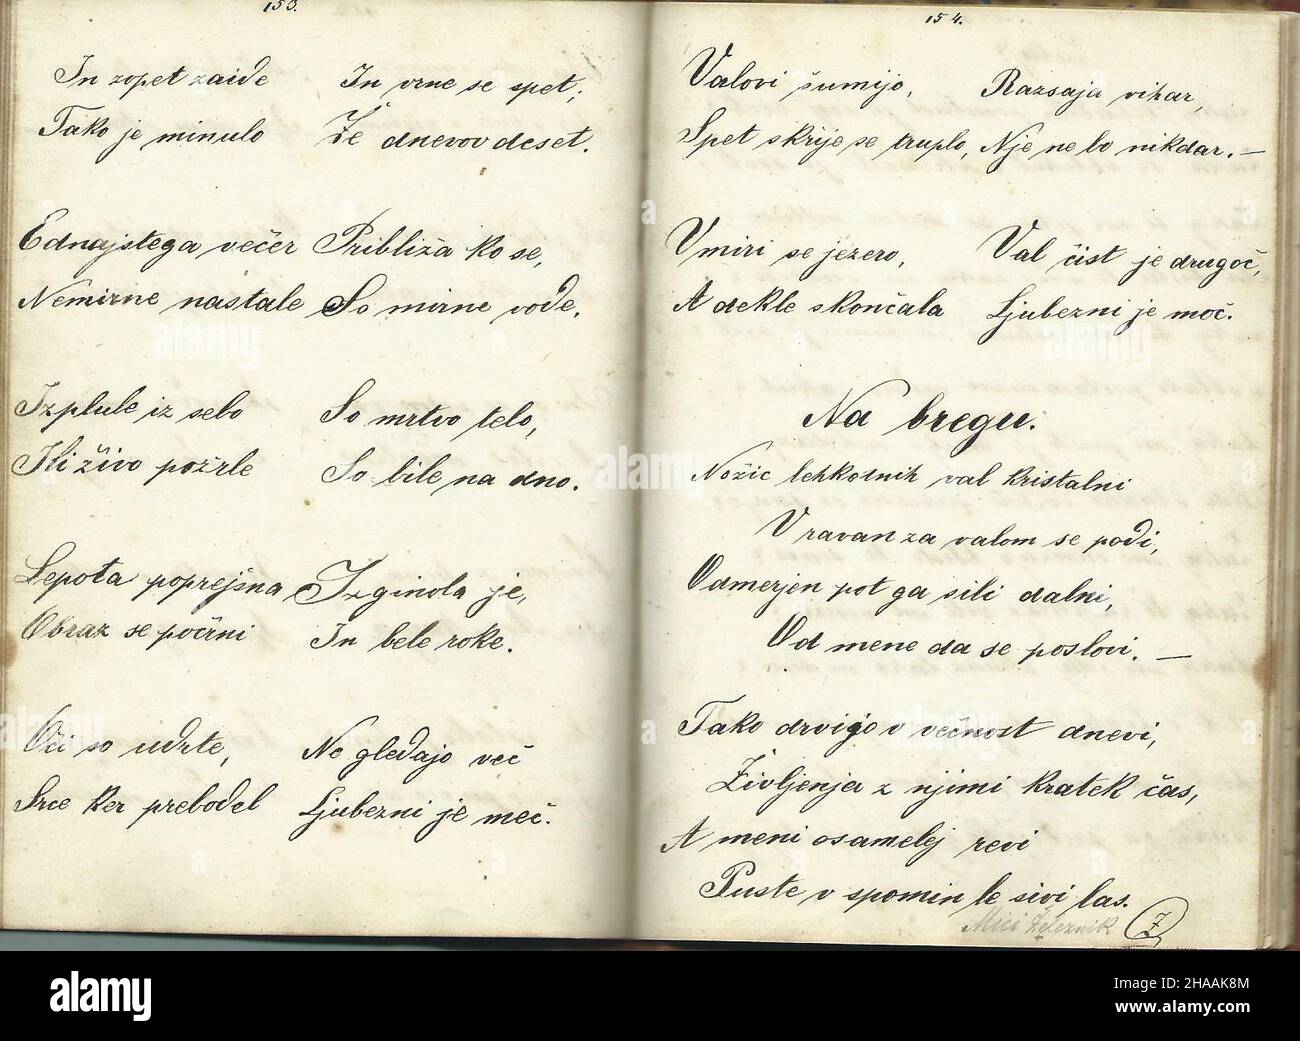 153.
In zopet zaide In vrne se spet;
Tako je minulo Že dnevov deset.
Ednajstega večer Približa ko se,
Nemirne nastale So mirne vode.
Izplule iz sebo So mrtvo telo,
Ki živo požrle So bile na dno.
Lepota poprejšna Izginola je,
Obraz se počrni In bele roke.
Oči so udrte, Ne gledajo več
Srce ker prebodel Ljubezni je meč.
154.
Valovi šumijo, Razsaja vihar,
Spet skrije se truplo, Nje ne bo nikdar. —
Vmiri se jezero, Val čist je drugoč,
A dekle skončala Ljubezni je moč.
Na bregu.
Nožic lehkotnih val kristalni
V ravan za valom se podi,
Odmerjen pot ga sili dalni,
Od mene da se poslovi. —
Tako drvijo v večnost dnevi,
Življenja z njimi kratek čas,
A meni osamelej revi
Puste v spomin le sivi las.
Mici Železnik Ž
alamy
Image ID: 2HAAK8M
www.alamy.com